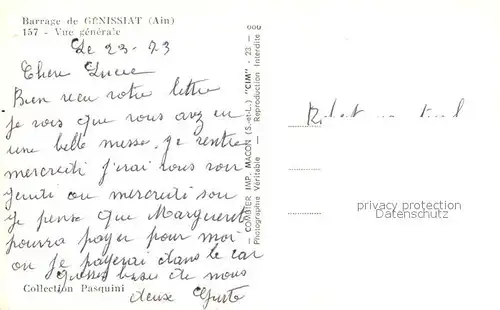 Barrage de GÉNISSIAT (Ain)
157 - Vue générale
Le 23 - 73
Chere Lucie
Bien reçu votre lettre
Je vois que vous avez eu
une belle messe. Je rentre
mercredi j'irai vous voir
jeudi ou mercredi soir
Je pense que Marguerite
pourra payer pour moi
ou je payerai dans le car
Grosses bises de nous
deux Guste
Collection Pasquini
— COMBIER IMP. MACON (S.-et-L.) "CIM" - 23 - 600
Photographie Véritable — Reproduction Interdite
privacy protection
Datenschutz